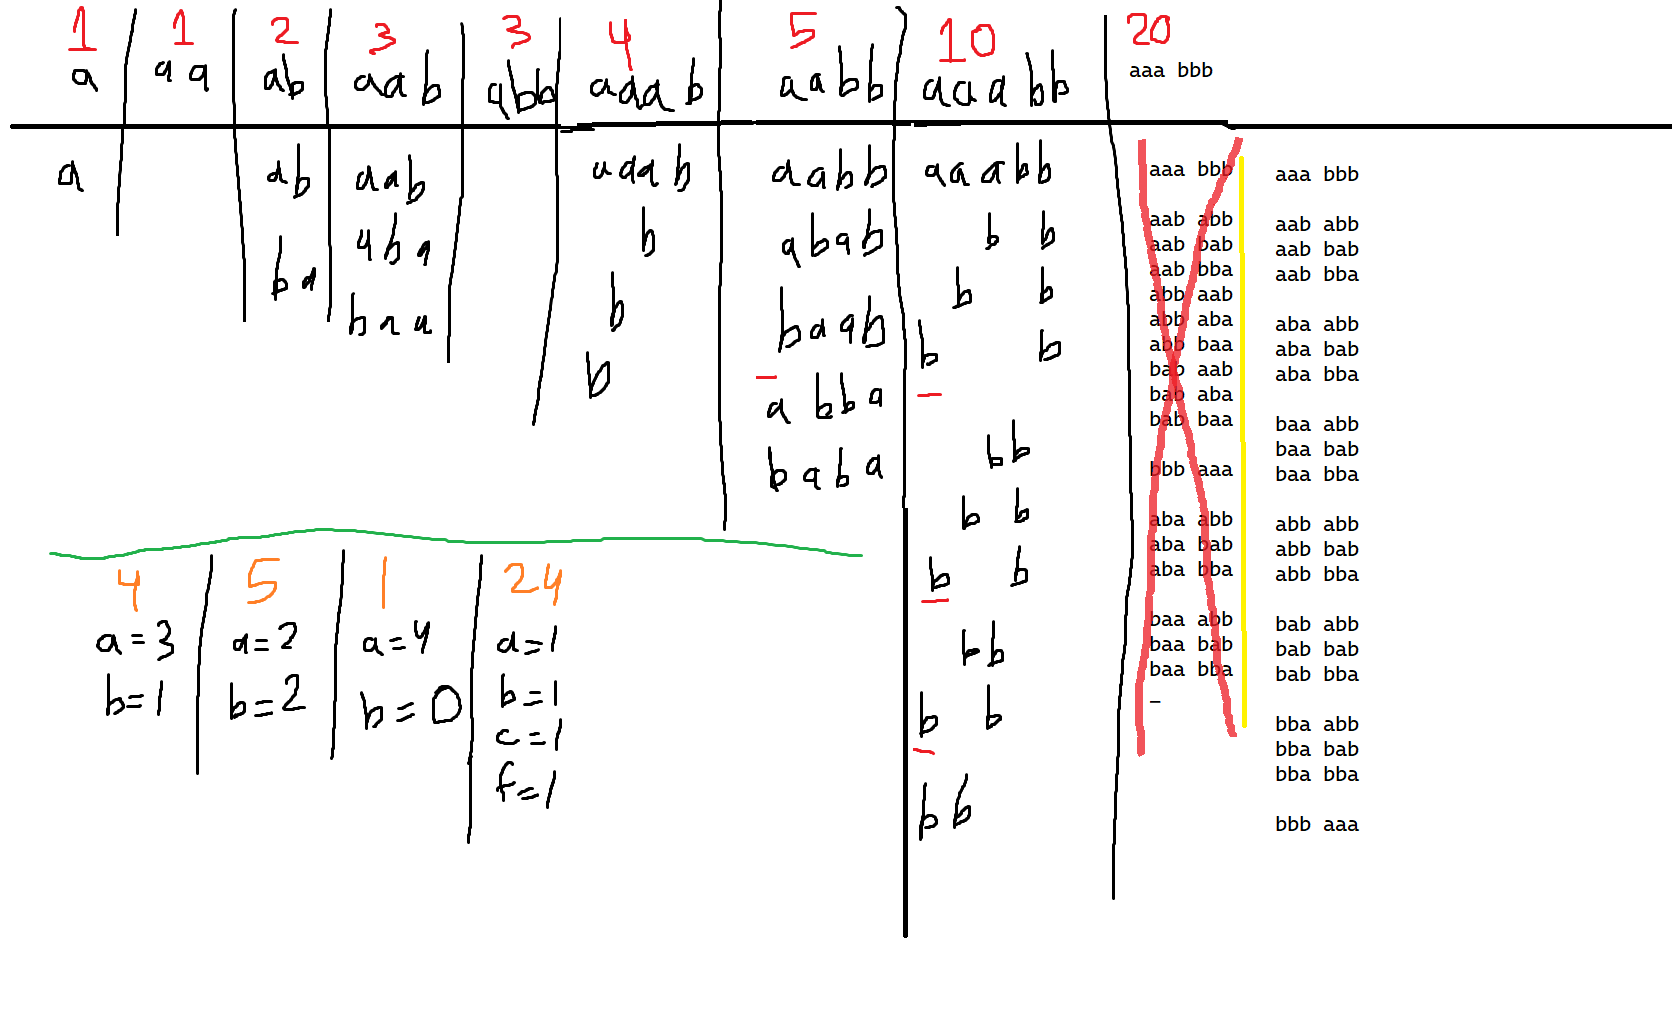 1
a
a
1
a a
2
ab
ab
ba
3
aab
aab
aba
baa
3
abb
4
aaab
aaab
b
b
b
5
aabb
aabb
abab
baab
abba
baba
10
aaabb
aaabb
b b
b b
b b
bb
b b
b b
bb
b b
bb
20
aaa bbb
aaa bbb
aab abb
aab bab
aab bba
abb aab
abb aba
abb baa
bab aab
bab aba
bab baa
bbb aaa
aba abb
aba bab
aba bba
baa abb
baa bab
baa bba
_
aaa bbb
aab abb
aab bab
aab bba
aba abb
aba bab
aba bba
baa abb
baa bab
baa bba
abb abb
abb bab
abb bba
bab abb
bab bab
bab bba
bba abb
bba bab
bba bba
bbb aaa
4
a=3
b=1
5
a=2
b=2
1
a=4
b=0
24
a=1
b=1
c=1
f=1